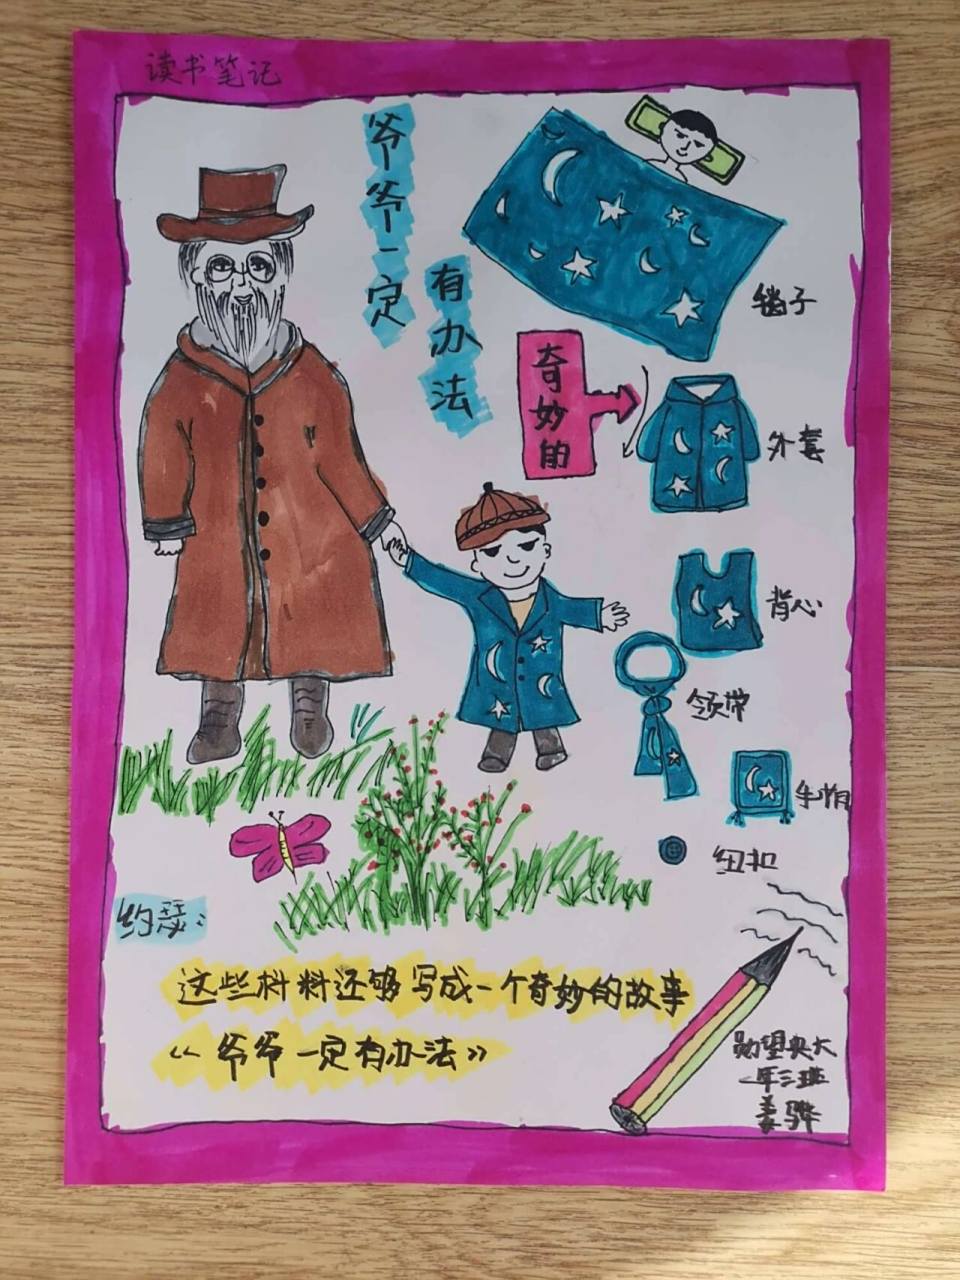 读书笔记
爷爷一定
有办法
奇妙的
毯子
外套
背心
领带
手帕
纽扣
约瑟：
这些材料还够写成一个奇妙的故事
《爷爷一定有办法》
勋望奥大
一年三班
姜骅